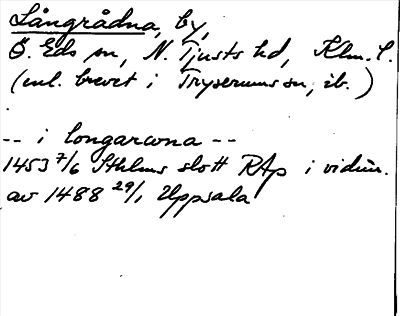 Långrådna, by,
Ö. Eds sn, N. Tjusts hd, Klm. l.
(enl. brevet i Tryserums sn, ib.)
-- i longarcona --
1453 7/6 Sthlms slott RAp i vidim.
av 1488 29/1 Uppsala